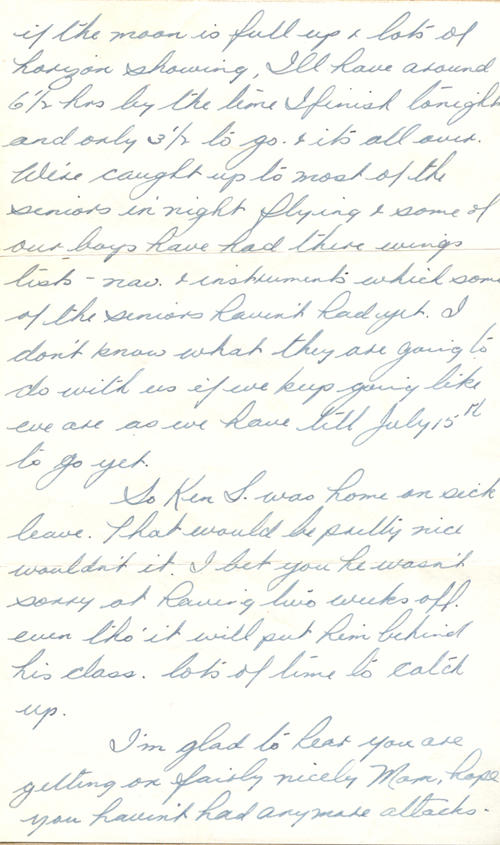 if the moon is full up & lots of
horizon showing, I'll have around
6½ hrs by the time I finish tonight
and only 3½ to go. & it's all over.
We're caught up to most of the
seniors in night flying & some of
our boys have had there wings
tists - nav. & instruments which some
of the seniors havin't had yet. I
don't know what they are going to
do with us if we keep going like
we are as we have till July 15th
to go yet.
So Ken S. was home on sick
leave. That would be pretty nice
wouldn't it. I bet you he wasn't
sorry at having two weeks off.
even tho' it will put him behind
his class. lots of time to catch
up.
I'm glad to hear you are
getting on fairly nicely Mom, hope
you havin't had anymore attacks.